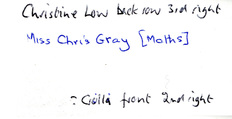 Christine Low back row 3rd right
Miss Chris Gray [Maths]
: Gillã front 2nd right